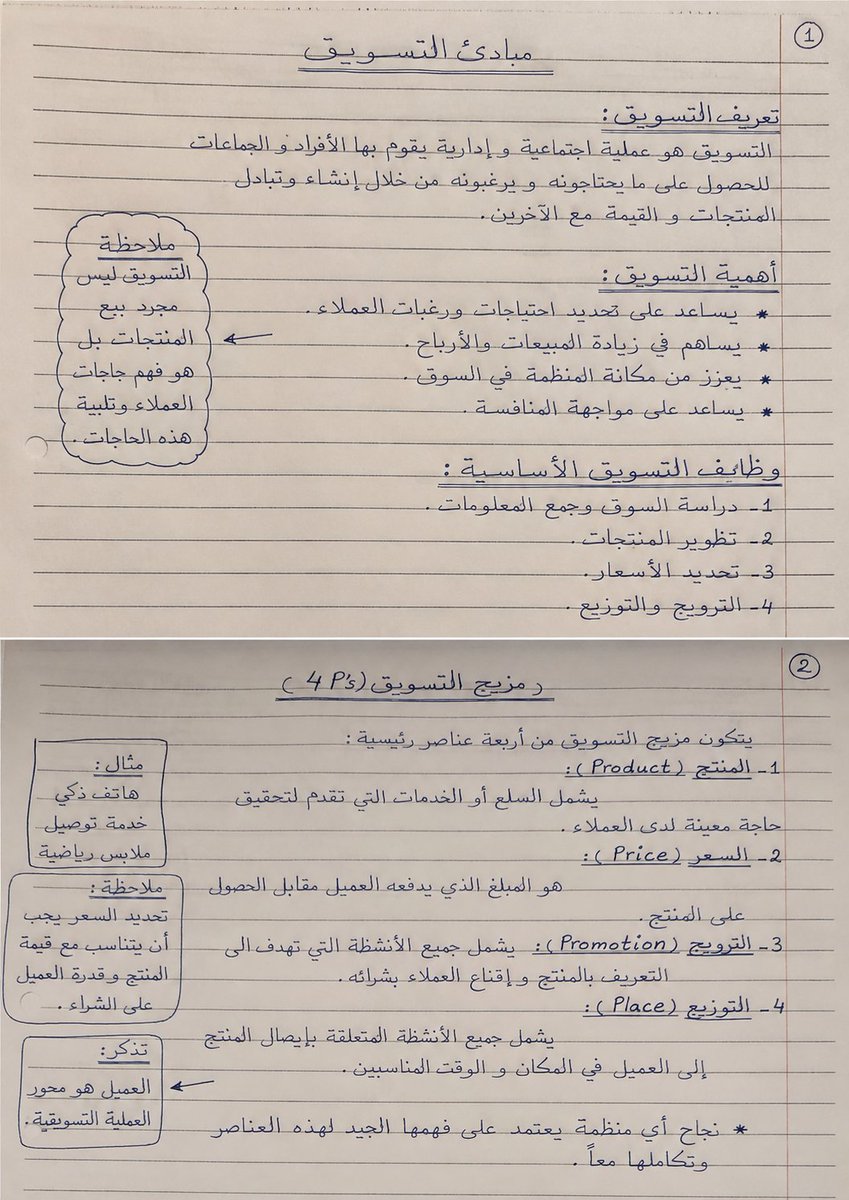 1
مبادئ التسويق
تعريف التسويق :
التسويق هو عملية اجتماعية و إدارية يقوم بها الأفراد و الجماعات
للحصول على ما يحتاجونه و يرغبونه من خلال إنشاء وتبادل
المنتجات و القيمة مع الآخرين.
أهمية التسويق :
* يساعد على تحديد احتياجات ورغبات العملاء.
* يساهم في زيادة المبيعات والأرباح.
* يعزز من مكانة المنظمة في السوق.
* يساعد على مواجهة المنافسة.
ملاحظة
التسويق ليس
مجرد بيع
المنتجات بل
هو فهم حاجات
العملاء وتلبية
هذه الحاجات.
وظائف التسويق الأساسية :
1- دراسة السوق وجمع المعلومات.
2- تظوير المنتجات.
3- تحديد الأسعار.
4- الترويج والتوزيع.
2
مزيج التسويق (4 P's)
يتكون مزيج التسويق من أربعة عناصر رئيسية :
1- المنتج (Product) :
يشمل السلع أو الخدمات التي تقدم لتحقيق
حاجة معينة لدى العملاء.
مثال :
هاتف ذكي
خدمة توصيل
ملابس رياضية
2- السعر (Price) :
هو المبلغ الذي يدفعه العميل مقابل الحصول
على المنتج.
ملاحظة :
تحديد السعر يجب
أن يتناسب مع قيمة
المنتج و قدرة العميل
على الشراء.
3- الترويج (Promotion) : يشمل جميع الأنشظة التي تهدف الى
التعريف بالمنتج و إقناع العملاء بشرائه.
4- التوزيع (Place) :
يشمل جميع الأنشظة المتعلقة بإيصال المنتج
إلى العميل في المكان و الوقت المناسبين.
تذكر :
العميل هو محور
العملية التسويقية.
* نجاح أي منظمة يعتمد على فهمها الجيد لهذه العناصر
وتكاملها معاً.